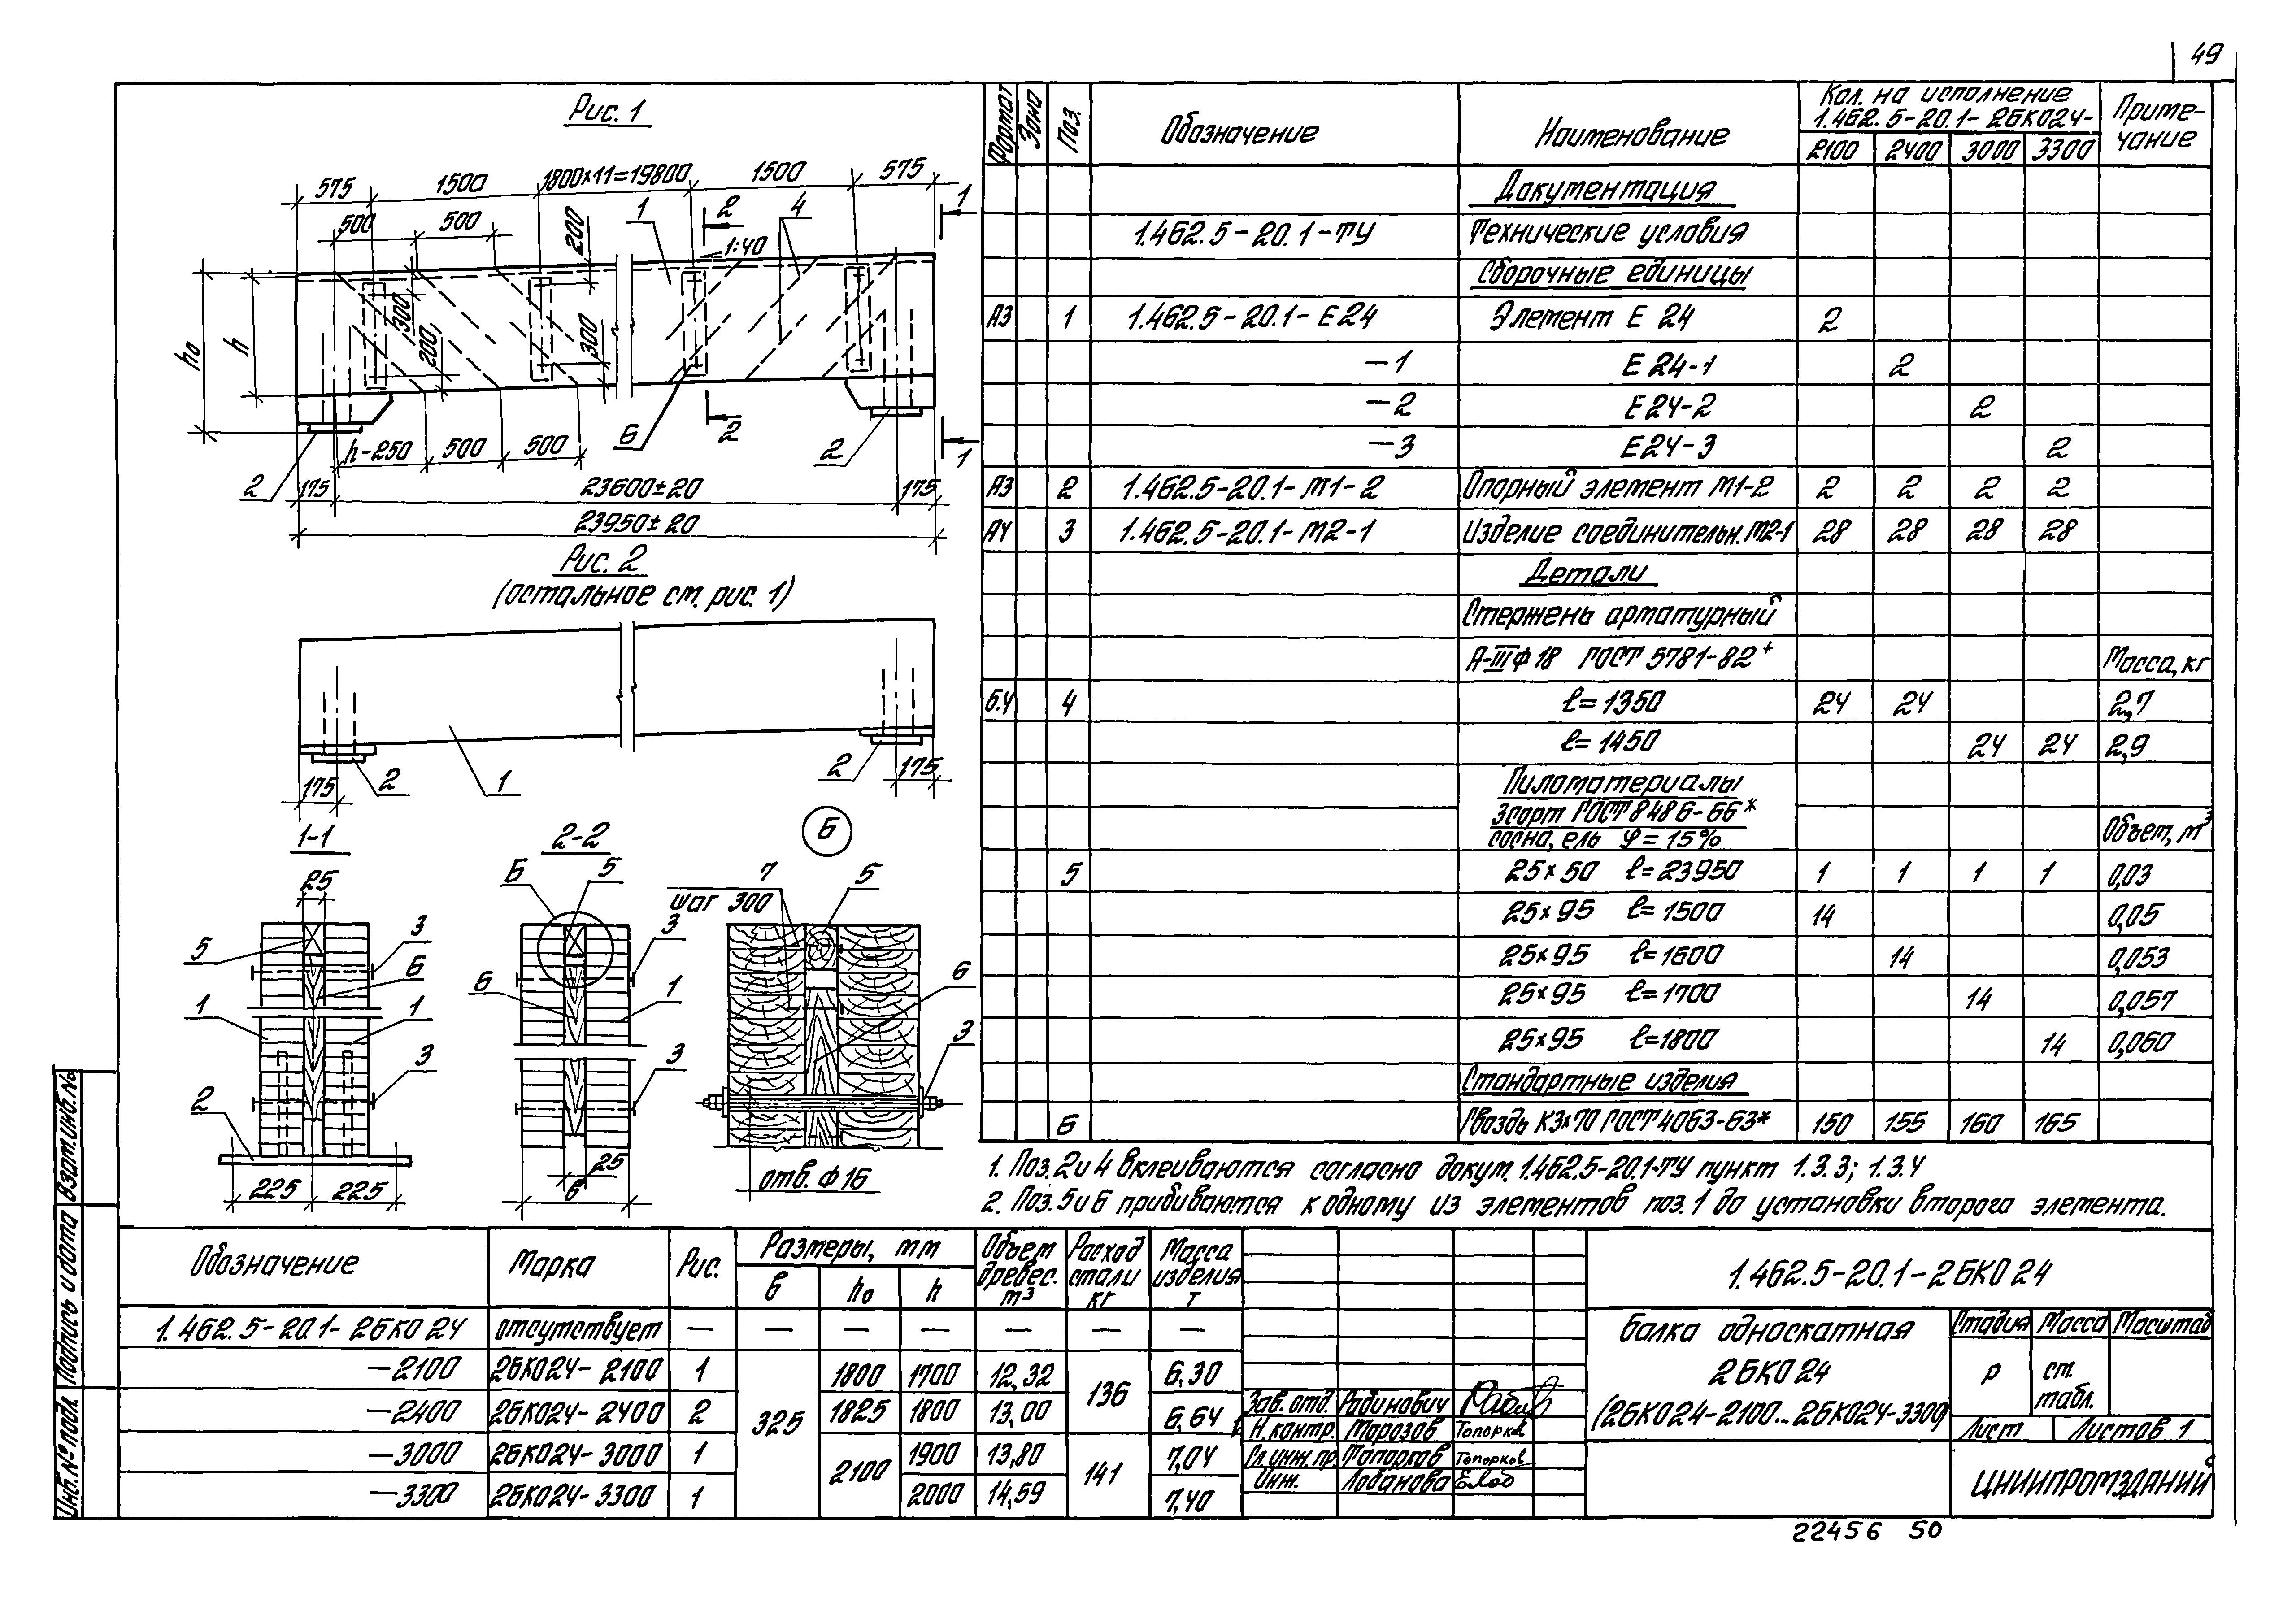 49
Рис. 1
575 1500 1800×11=19800 1500 575
500 500 200 1 2 4 1
1:40
h₀ h 300 200 300
h-250 500 500 6 2 2 1
2 175 23600±20 175
23950±20
Рис. 2
(остальное см. рис. 1)
175 2 1 2 175
1-1
25
5 3
6
1 1
3
2
225 225
2-2
Б 5
3
6 1
3
25
в
Б
7 5
шаг 300
6
3
отв. Ф16
Формат Зона Поз. Обозначение Наименование Кол. на исполнение 1.462.5-20.1-2БК024- Примечание
2100 2400 3000 3300
Документация
1.462.5-20.1-ТУ Технические условия
Сборочные единицы
А3 1 1.462.5-20.1-Е24 Элемент Е 24 2
-1 Е 24-1 2
-2 Е24-2 2
-3 Е24-3 2
А3 2 1.462.5-20.1-М1-2 Опорный элемент М1-2 2 2 2 2
А4 3 1.462.5-20.1-М2-1 Изделие соединительн. М2-1 28 28 28 28
Детали
Стержень арматурный
А-III Ф 18 ГОСТ 5781-82* Масса, кг
Б.Ч 4 ℓ=1350 24 24 2,7
ℓ=1450 24 24 2,9
Пиломатериалы
3сорт ГОСТ 8486-66*
сосна, ель φ=15% Объем, м³
5 25×50 ℓ=23950 1 1 1 1 0,03
25×95 ℓ=1500 14 0,05
25×95 ℓ=1600 14 0,053
25×95 ℓ=1700 14 0,057
25×95 ℓ=1800 14 0,060
Стандартные изделия
6 Гвоздь К3×70 ГОСТ 4063-63* 150 155 160 165
1. Поз. 2 и 4 вклеиваются согласно докум. 1.462.5-20.1-ТУ пункт 1.3.3; 1.3.4
2. Поз. 5 и 6 прибиваются к одному из элементов поз. 1 до установки второго элемента.
Обозначение Марка Рис. Размеры, мм Объем древес. м³ Расход стали кг Масса изделия т
в h₀ h
1.462.5-20.1-2БК024 отсутствует — — — — — — —
-2100 2БК024-2100 1 325 1800 1700 12,32 136 6,30
-2400 2БК024-2400 2 1825 1800 13,00 6,64
-3000 2БК024-3000 1 2100 1900 13,80 141 7,04
-3300 2БК024-3300 1 2000 14,59 7,40
Зав. отд. Радинович
Н. контр. Морозов Топорков
Гл. инж. пр. Топорков Топорков
Инж. Лобанова
1.462.5-20.1-2БК024
Балка односкатная
2БК024
(2БК024-2100...2БК024-3300)
Стадия Масса Масштаб
Р см. табл.
Лист Листов 1
ЦНИИПРОМЗДАНИЙ
Инв. № подл. Подпись и дата Взам. инв. №
22456 50